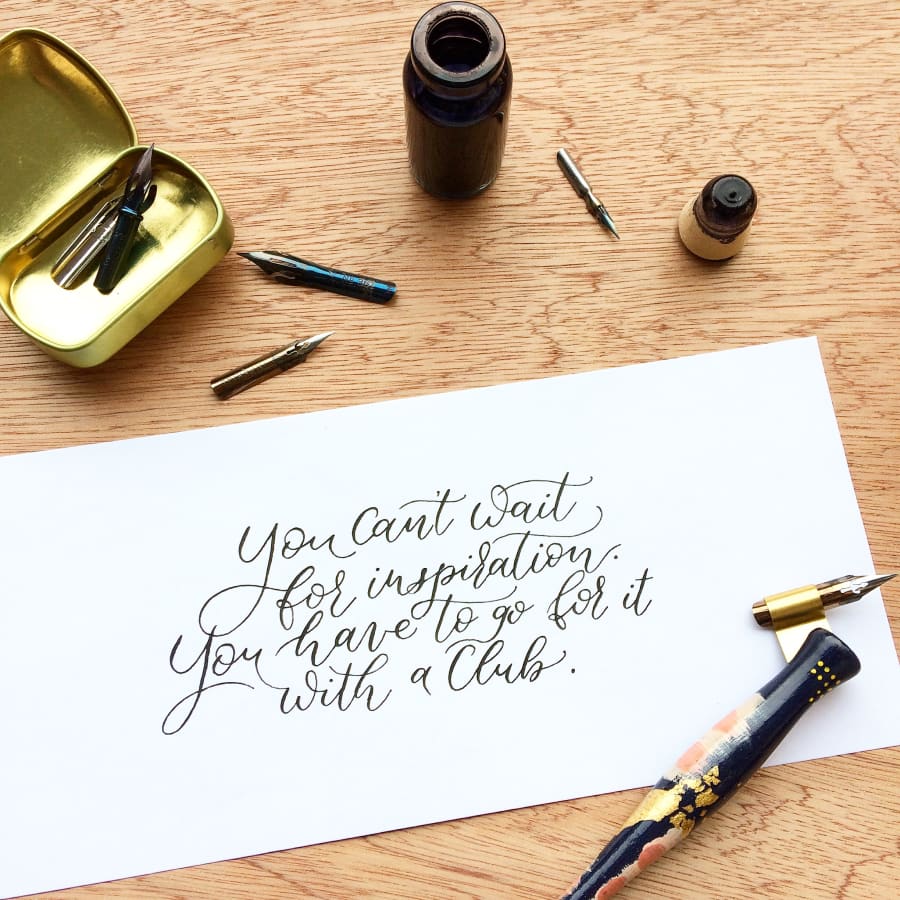 You can't wait
for inspiration.
You have to go for it
with a Club.